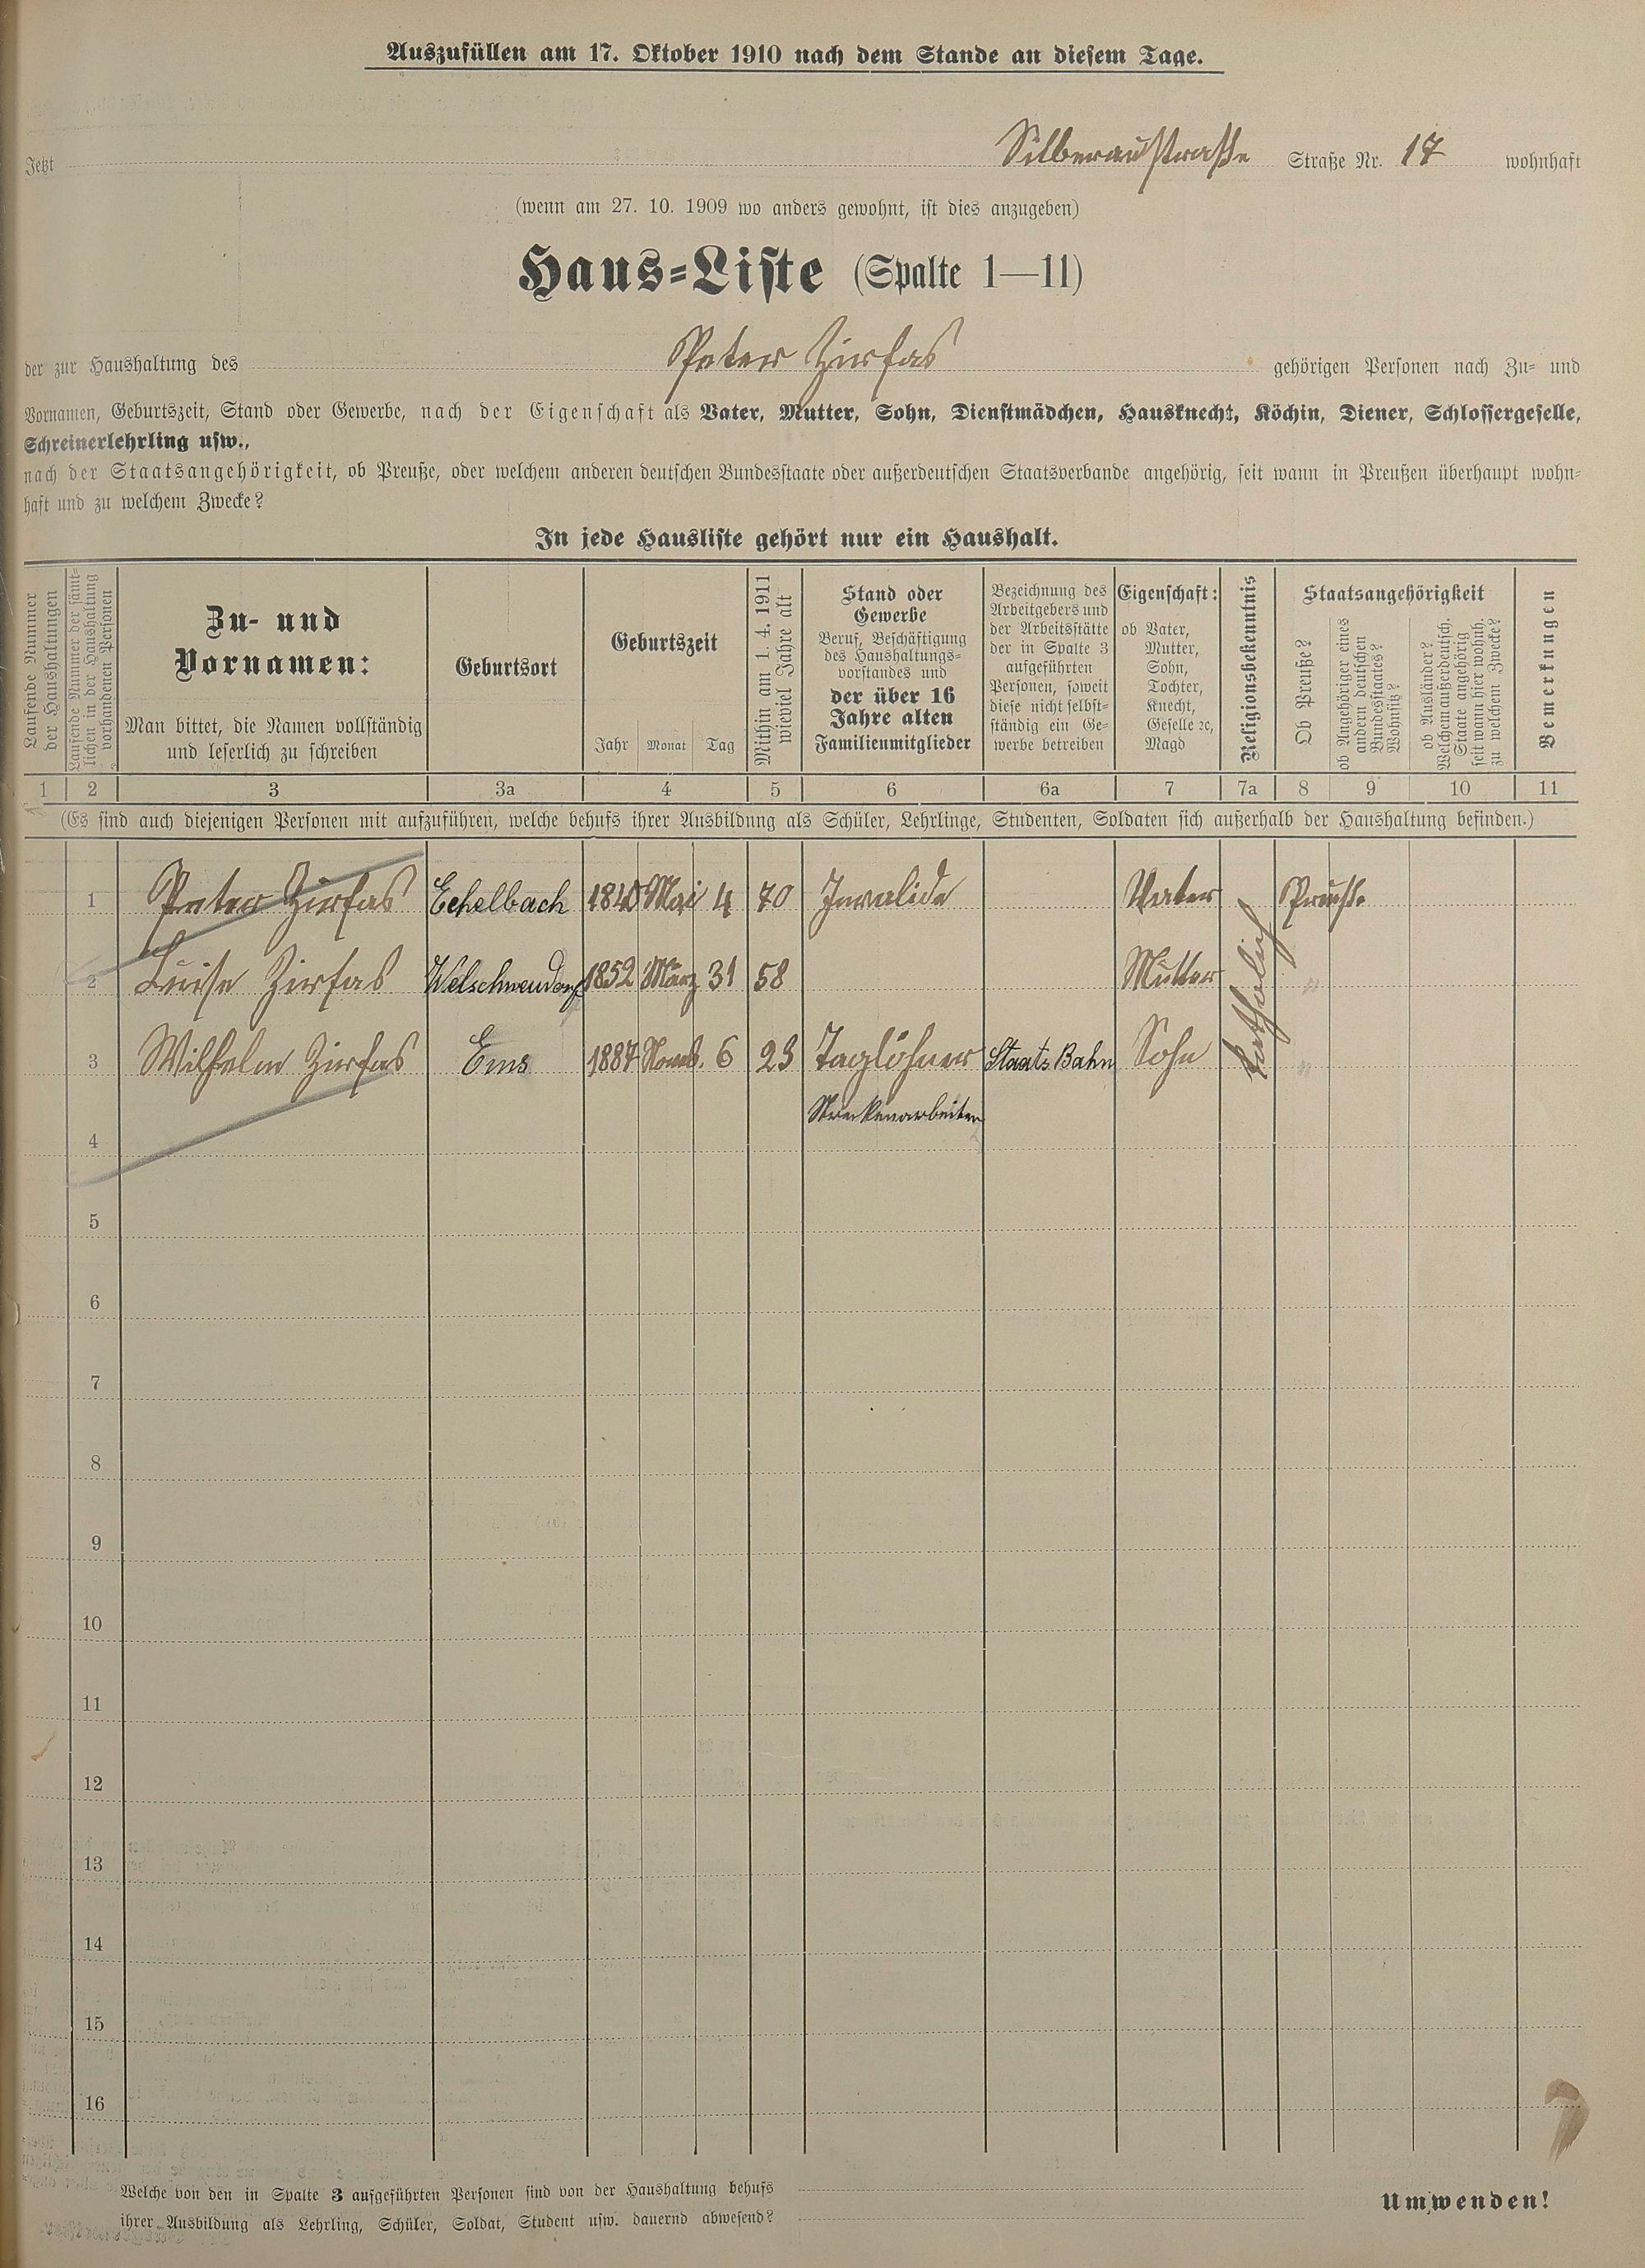 Auszufüllen am 17. Oktober 1910 nach dem Stande an diesem Tage.
Jetzt Silberaustraße Straße Nr. 17 wohnhaft
(wenn am 27. 10. 1909 wo anders gewohnt, ist dies anzugeben)
Haus-Liste (Spalte 1—11)
der zur Haushaltung des Peter Zirfas gehörigen Personen nach Zu- und
Vornamen, Geburtszeit, Stand oder Gewerbe, nach der Eigenschaft als Vater, Mutter, Sohn, Dienstmädchen, Hausknecht, Köchin, Diener, Schlossergeselle,
Schreinerlehrling usw.,
nach der Staatsangehörigkeit, ob Preuße, oder welchem anderen deutschen Bundesstaate oder außerdeutschen Staatsverbande angehörig, seit wann in Preußen überhaupt wohn-
haft und zu welchem Zwecke?
In jede Hausliste gehört nur ein Haushalt.
Laufende Nummer
der Haushaltungen
Laufende Nummer der sämt-
lichen in der Haushaltung
vorhandenen Personen
Zu- und
Vornamen:
Man bittet, die Namen vollständig
und leserlich zu schreiben
Geburtsort
Geburtszeit
Jahr Monat Tag
Mithin am 1. 4. 1911
wieviel Jahre alt
Stand oder
Gewerbe
Beruf, Beschäftigung
des Haushaltungs-
vorstandes und
der über 16
Jahre alten
Familienmitglieder
Bezeichnung des
Arbeitgebers und
der Arbeitsstätte
der in Spalte 3
aufgeführten
Personen, soweit
diese nicht selbst-
ständig ein Ge-
werbe betreiben
Eigenschaft:
ob Vater,
Mutter,
Sohn,
Tochter,
Knecht,
Geselle ꝛc,
Magd
Religionsbekenntnis
Staatsangehörigkeit
Ob Preuße?
ob Angehöriger eines
andern deutschen
Bundesstaates?
Wohnsitz?
ob Ausländer?
Welchem außerdeutsch.
Staate angehörig
seit wann hier wohnh.
zu welchem Zwecke?
Bemerkungen
1 2 3 3a 4 5 6 6a 7 7a 8 9 10 11
(Es sind auch diejenigen Personen mit aufzuführen, welche behufs ihrer Ausbildung als Schüler, Lehrlinge, Studenten, Soldaten sich außerhalb der Haushaltung befinden.)
1 Peter Zirfas Eschelbach 1840 Mai 4 70 Invalide Vater Preuße
2 Luise Zirfas Welschneudorf 1852 März 31 58 Mutter "
katholisch
3 Wilhelm Zirfas Ems 1887 Novb. 6 23 Taglöhner Staats Bahn Sohn "
Streckenarbeiter
4
5
6
7
8
9
10
11
12
13
14
15
16
Welche von den in Spalte 3 aufgeführten Personen sind von der Haushaltung behufs
ihrer Ausbildung als Lehrling, Schüler, Soldat, Student usw. dauernd abwesend?
Umwenden!